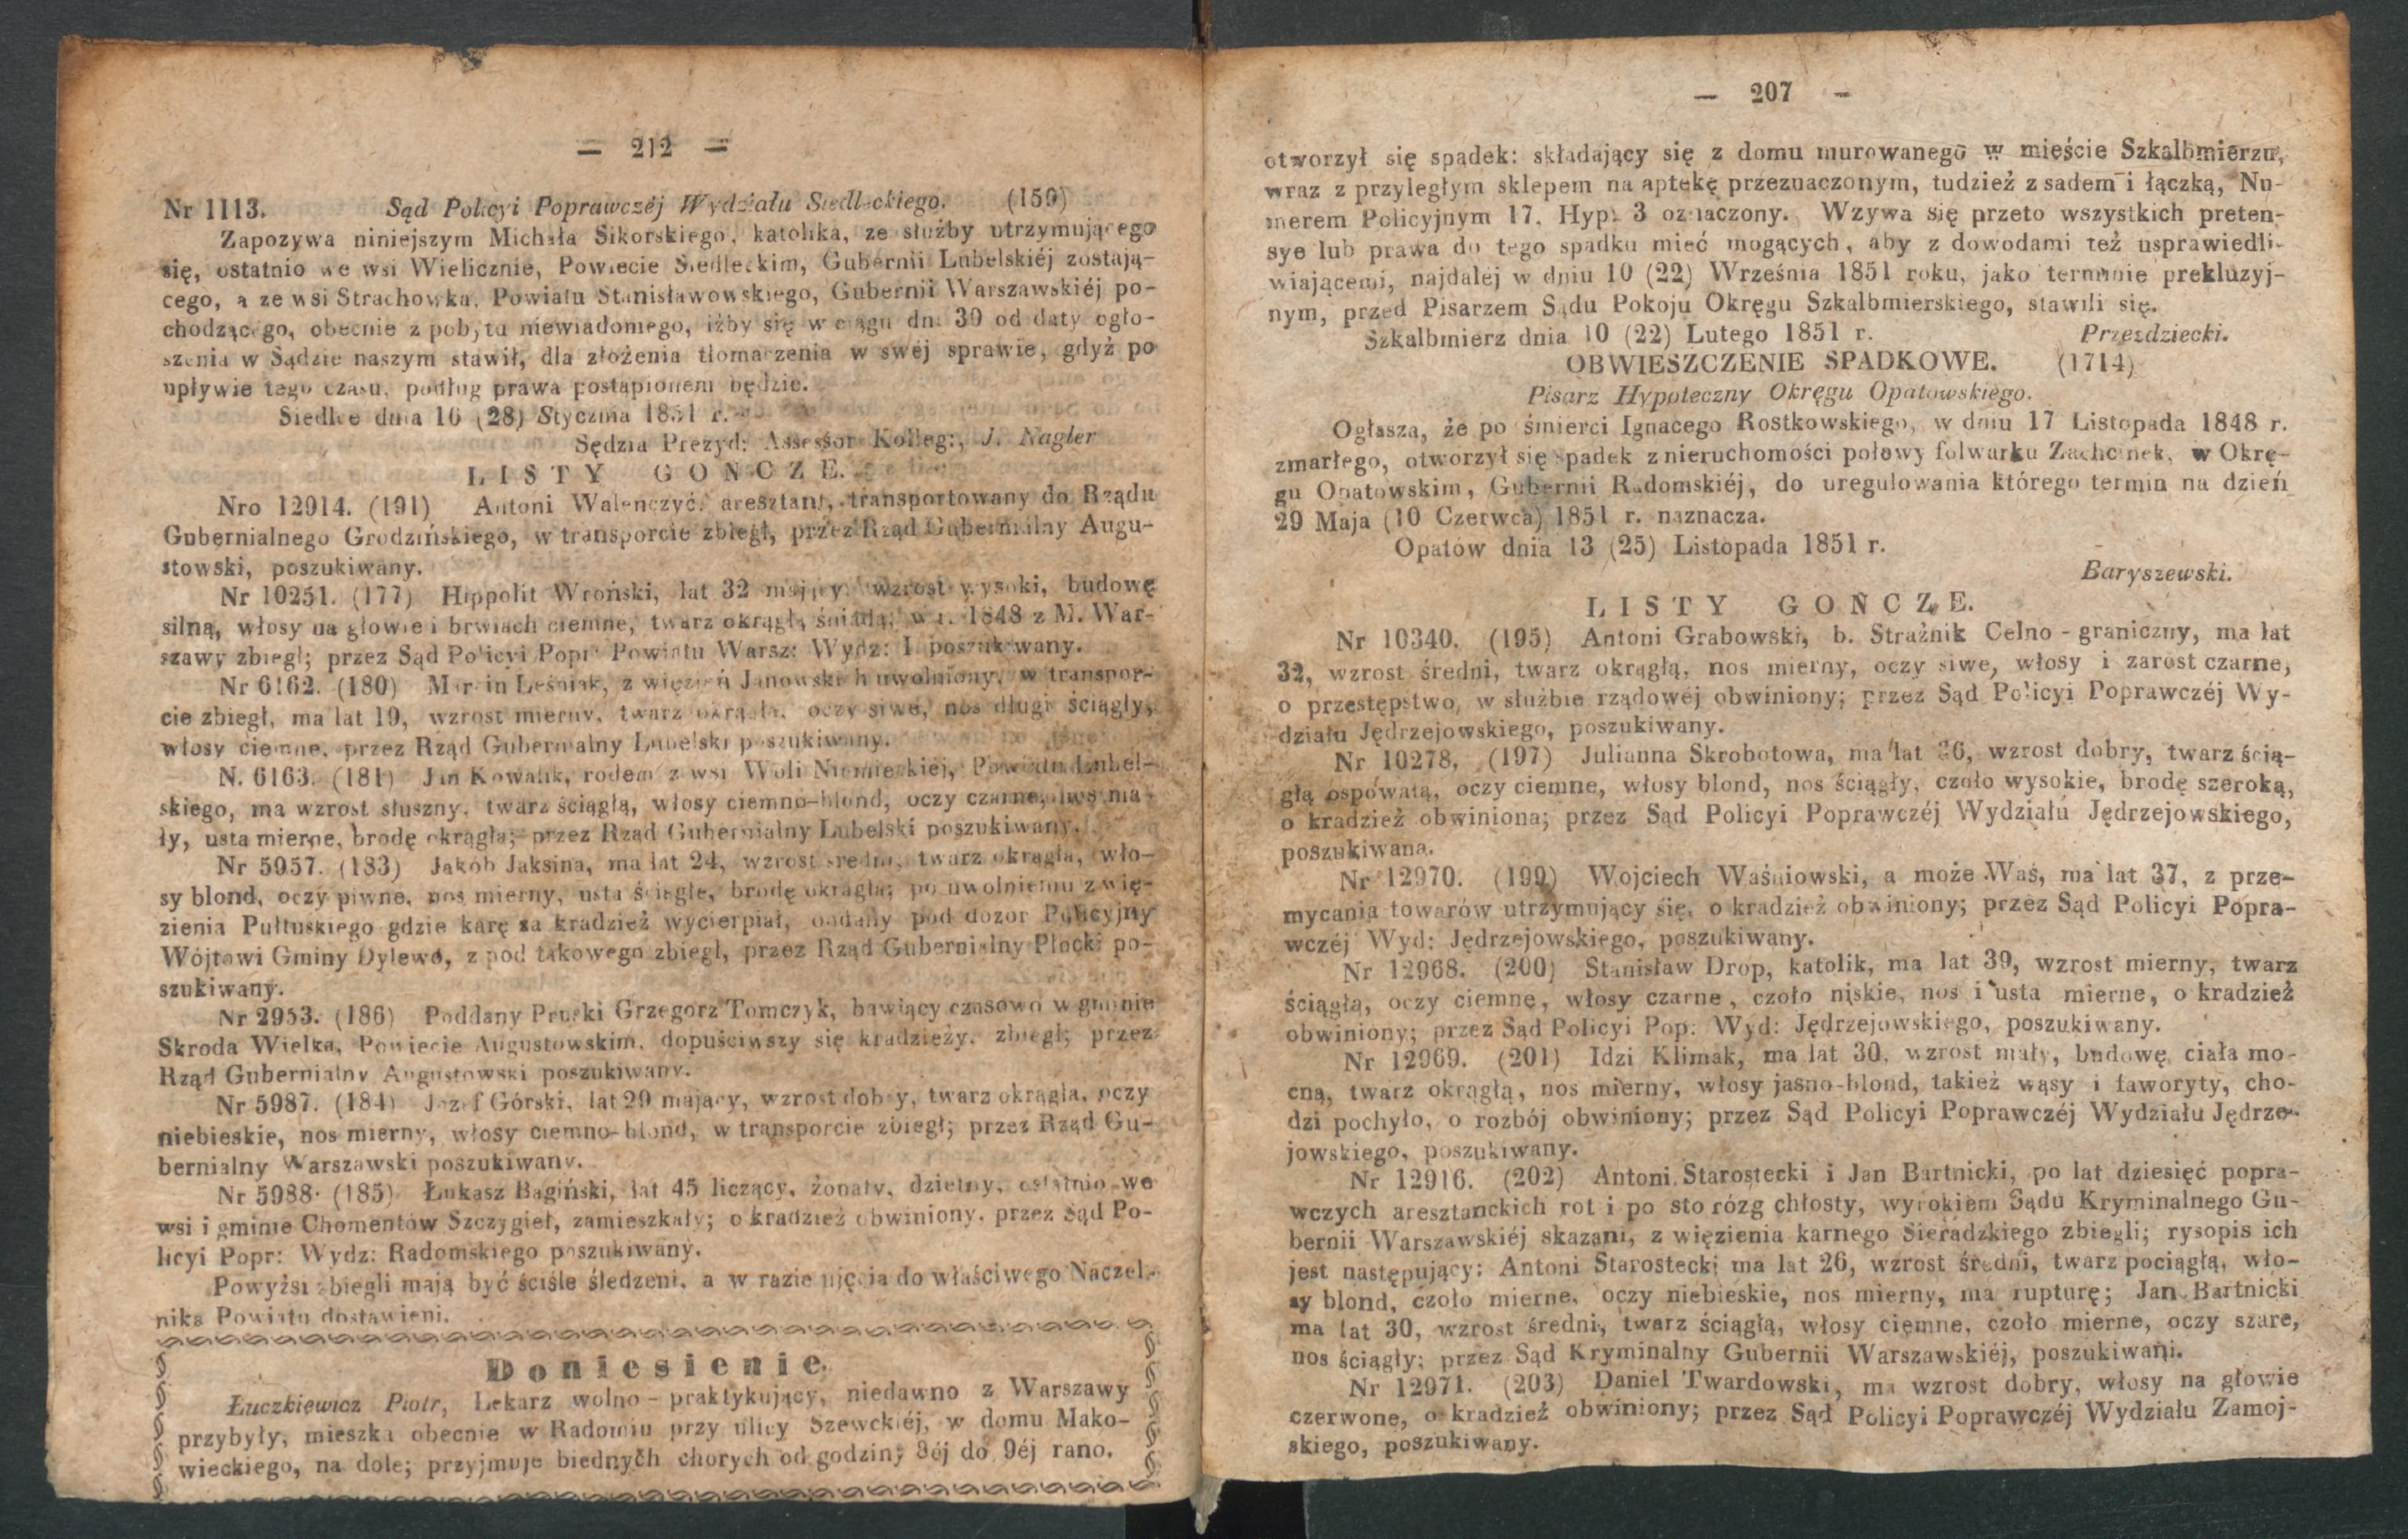 — 212 —
Nr 1113. Sąd Policyi Poprawczéj Wydziału Siedleckiego. (150)
Zapozywa niniejszym Michała Sikorskiego, katolika, ze służby utrzymującego
się, ostatnio we wsi Wielicznie, Powiecie Siedleckim, Gubernii Lubelskiéj zostają-
cego, a ze wsi Strachowka, Powiatu Stanisławowskiego, Gubernii Warszawskiéj po-
chodzącego, obecnie z pobytu niewiadomego, iżby się w ciągu dni 30 od daty ogło-
szenia w Sądzie naszym stawił, dla złożenia tłomaczenia w swéj sprawie, gdyż po
upływie tego czasu, podług prawa postąpionem będzie.
Siedlce dnia 16 (28) Stycznia 1851 r.
Sędzia Prezyd: Assessor Kolleg:, J. Nagler
LISTY GOŃCZE.
Nro 12914. (191) Antoni Walenczyć, aresztant, transportowany do Rządu
Gubernialnego Grodzińskiego, w transporcie zbiegł, przez Rząd Gubernialny Augu-
stowski, poszukiwany.
Nr 10251. (177) Hippolit Wroński, lat 32 mający, wzrost wysoki, budowę
silną, włosy na głowie i brwiach ciemne, twarz okrągłą śniadą, w r. 1848 z M. War-
szawy zbiegł; przez Sąd Policyi Popr: Powiatu Warsz: Wydz: I poszukiwany.
Nr 6162. (180) Marcin Leśniak, z więzień Janowskich uwolniony, w transpor-
cie zbiegł, ma lat 19, wzrost mierny, twarz okrągłą, oczy siwe, nos długi ściągły,
włosy ciemne, przez Rząd Gubernialny Lubelski poszukiwany.
N. 6163. (181) Jan Kowalik, rodem z wsi Woli Niemieckiej, Powiatu Lubel-
skiego, ma wzrost słuszny, twarz ściągłą, włosy ciemno-blond, oczy czarne, nos ma-
ły, usta mierne, brodę okrągłą; przez Rząd Gubernialny Lubelski poszukiwany.
Nr 5957. (183) Jakób Jaksina, ma lat 24, wzrost średni, twarz okrągłą, wło-
sy blond, oczy piwne, nos mierny, usta ściągłe, brodę okrągłą; po uwolnieniu z wię-
zienia Pułtuskiego gdzie karę za kradzież wycierpiał, oddany pod dozor Policyjny
Wójtowi Gminy Dylewo, z pod takowego zbiegł, przez Rząd Gubernialny Płocki po-
szukiwany.
Nr 2953. (186) Poddany Pruski Grzegorz Tomczyk, bawiący czasowo w gminie
Skroda Wielka, Powiecie Augustowskim, dopuściwszy się kradzieży, zbiegł; przez
Rząd Gubernialny Augustowski poszukiwany.
Nr 5987. (184) Jozef Górski, lat 29 mający, wzrost dobry, twarz okrągłą, oczy
niebieskie, nos mierny, włosy ciemno-blond, w transporcie zbiegł; przez Rząd Gu-
bernialny Warszawski poszukiwany.
Nr 5988. (185) Łukasz Bagiński, lat 45 liczący, żonaty, dzietny, ostatnio we
wsi i gminie Chomentów Szczygieł, zamieszkały; o kradzież obwiniony, przez Sąd Po-
licyi Popr: Wydz: Radomskiego poszukiwany.
Powyżsi zbiegli mają być ściśle śledzeni, a w razie ujęcia do właściwego Naczel-
nika Powiatu dostawieni.
Doniesienie.
Łuczkiewicz Piotr, Lekarz wolno-praktykujący, niedawno z Warszawy
przybyły, mieszka obecnie w Radomiu przy ulicy Szewckiéj, w domu Mako-
wieckiego, na dole; przyjmuje biednych chorych od godziny 8éj do 9éj rano.
— 207 —
otworzył się spadek: składający się z domu murowanego w mieście Szkalbmierzu,
wraz z przyległym sklepem na aptekę przeznaczonym, tudzież z sadem i łączką, Nu-
merem Policyjnym 17. Hyp: 3 oznaczony. Wzywa się przeto wszystkich preten-
sye lub prawa do tego spadku mieć mogących, aby z dowodami też usprawiedli-
wiającemi, najdalej w dniu 10 (22) Września 1851 roku, jako terminie prekluzyj-
nym, przed Pisarzem Sądu Pokoju Okręgu Szkalbmierskiego, stawili się.
Szkalbmierz dnia 10 (22) Lutego 1851 r. Przezdziecki.
OBWIESZCZENIE SPADKOWE. (1714)
Pisarz Hypoteczny Okręgu Opatowskiego.
Ogłasza, że po śmierci Ignacego Rostkowskiego, w dniu 17 Listopada 1848 r.
zmarłego, otworzył się spadek z nieruchomości połowy folwarku Zachcinek, w Okrę-
gu Opatowskim, Gubernii Radomskiéj, do uregulowania którego termin na dzień
29 Maja (10 Czerwca) 1851 r. naznacza.
Opatów dnia 13 (25) Listopada 1851 r.
Baryszewski.
LISTY GOŃCZE.
Nr 10340. (195) Antoni Grabowski, b. Strażnik Celno-graniczny, ma lat
32, wzrost średni, twarz okrągłą, nos mierny, oczy siwe, włosy i zarost czarne,
o przestępstwo, w służbie rządowéj obwiniony; przez Sąd Policyi Poprawczéj Wy-
działu Jędrzejowskiego, poszukiwany.
Nr 10278, (197) Julianna Skrobotowa, ma lat 36, wzrost dobry, twarz ścią-
głą ospowatą, oczy ciemne, włosy blond, nos ściągły, czoło wysokie, brodę szeroką,
o kradzież obwiniona; przez Sąd Policyi Poprawczéj Wydziału Jędrzejowskiego,
poszukiwana.
Nr 12970. (199) Wojciech Waśniowski, a może Waś, ma lat 37, z prze-
mycania towarów utrzymujący się, o kradzież obwiniony; przez Sąd Policyi Popra-
wczéj Wyd: Jędrzejowskiego, poszukiwany.
Nr 12968. (200) Stanisław Drop, katolik, ma lat 39, wzrost mierny, twarz
ściągłą, oczy ciemne, włosy czarne, czoło niskie, nos i usta mierne, o kradzież
obwiniony; przez Sąd Policyi Pop: Wyd: Jędrzejowskiego, poszukiwany.
Nr 12969. (201) Idzi Klimak, ma lat 30, wzrost mały, budowę ciała mo-
cną, twarz okrągłą, nos mierny, włosy jasno-blond, takież wąsy i faworyty, cho-
dzi pochyło, o rozbój obwiniony; przez Sąd Policyi Poprawczéj Wydziału Jędrze-
jowskiego, poszukiwany.
Nr 12916. (202) Antoni Starostecki i Jan Bartnicki, po lat dziesięć popra-
wczych aresztanckich rot i po sto rózg chłosty, wyrokiem Sądu Kryminalnego Gu-
bernii Warszawskiéj skazani, z więzienia karnego Sieradzkiego zbiegli; rysopis ich
jest następujący: Antoni Starostecki ma lat 26, wzrost średni, twarz pociągłą, wło-
sy blond, czoło mierne, oczy niebieskie, nos mierny, ma rupturę; Jan Bartnicki
ma lat 30, wzrost średni, twarz ściągłą, włosy ciemne, czoło mierne, oczy szare,
nos ściągły; przez Sąd Kryminalny Gubernii Warszawskiéj, poszukiwani.
Nr 12971. (203) Daniel Twardowski, ma wzrost dobry, włosy na głowie
czerwone, o kradzież obwiniony; przez Sąd Policyi Poprawczéj Wydziału Zamoj-
skiego, poszukiwany.